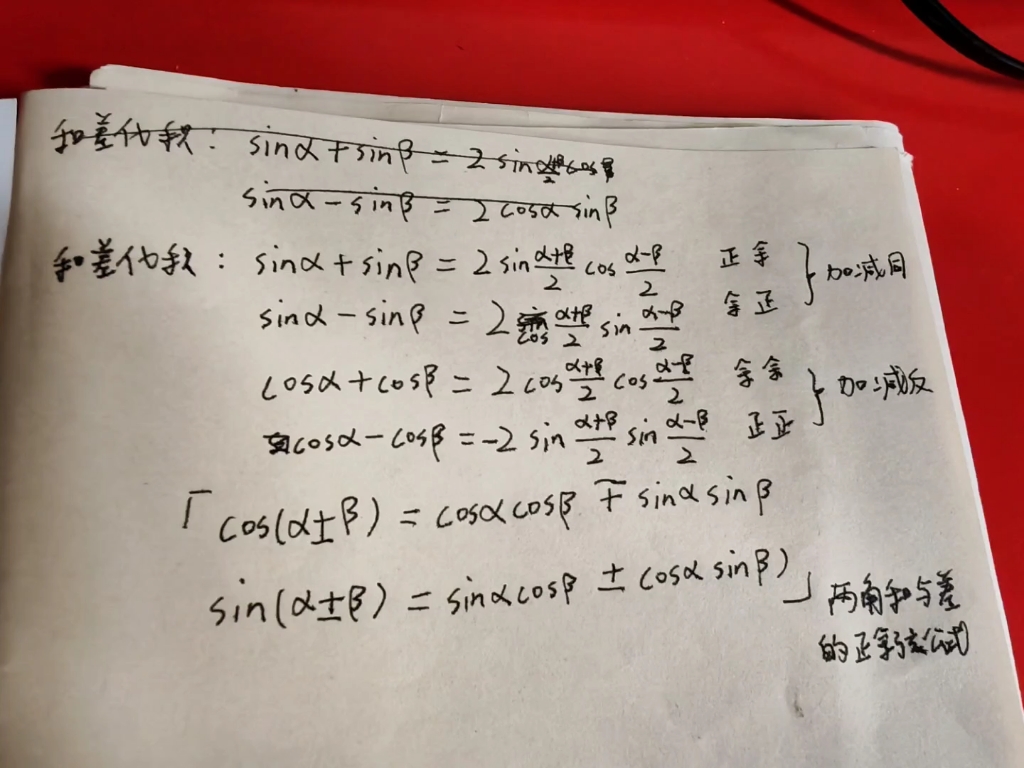 和差化积: sinα+sinβ=2sin(α+β)/2 cosβ
sinα-sinβ=2cosα sinβ
和差化积: sinα+sinβ=2sin(α+β)/2 cos(α-β)/2 正余
sinα-sinβ=2cos(α+β)/2 sin(α-β)/2 余正 } 加减同
cosα+cosβ=2cos(α+β)/2 cos(α-β)/2 余余
cosα-cosβ=-2sin(α+β)/2 sin(α-β)/2 正正 } 加减反
「cos(α±β)=cosαcosβ∓sinαsinβ
sin(α±β)=sinαcosβ±cosαsinβ)」
两角和与差
的正余弦公式